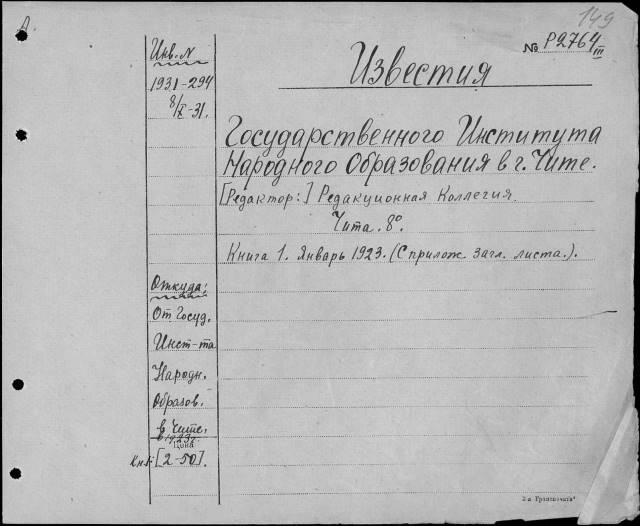 149
№ Р2764
III
Известия
Государственного Института
Народного Образования в г. Чите.
[Редактор:] Редакционная Коллегия.
Чита. 8°.
Книга 1. Январь 1923. (С прилож. загл. листа.).
Инв. N
1931-294
8/X-31.
Откуда:
От Госуд.
Инст-та
Народн.
Образов.
в Чите.
в 1923 г.
Цена
Кн. 1: [2-50].